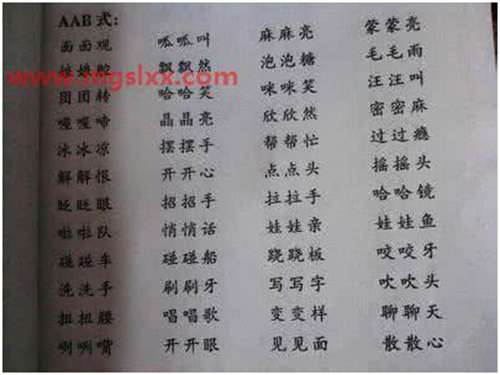 AAB式:
面面观 呱呱叫 麻麻亮 蒙蒙亮
飘飘然 泡泡糖 毛毛雨
www.mgslxx.com
团团转 哈哈笑 咪咪笑 汪汪叫
喔喔啼 晶晶亮 欣欣然 密密麻
冰冰凉 摆摆手 帮帮忙 过过瘾
解解恨 开开心 点点头 摇摇头
眨眨眼 招招手 拉拉手 哈哈镜
啦啦队 悄悄话 娃娃亲 娃娃鱼
碰碰车 碰碰船 跷跷板 咬咬牙
洗洗手 刷刷牙 写写字 吹吹头
扭扭腰 唱唱歌 变变样 聊聊天
咧咧嘴 开开眼 见见面 散散心